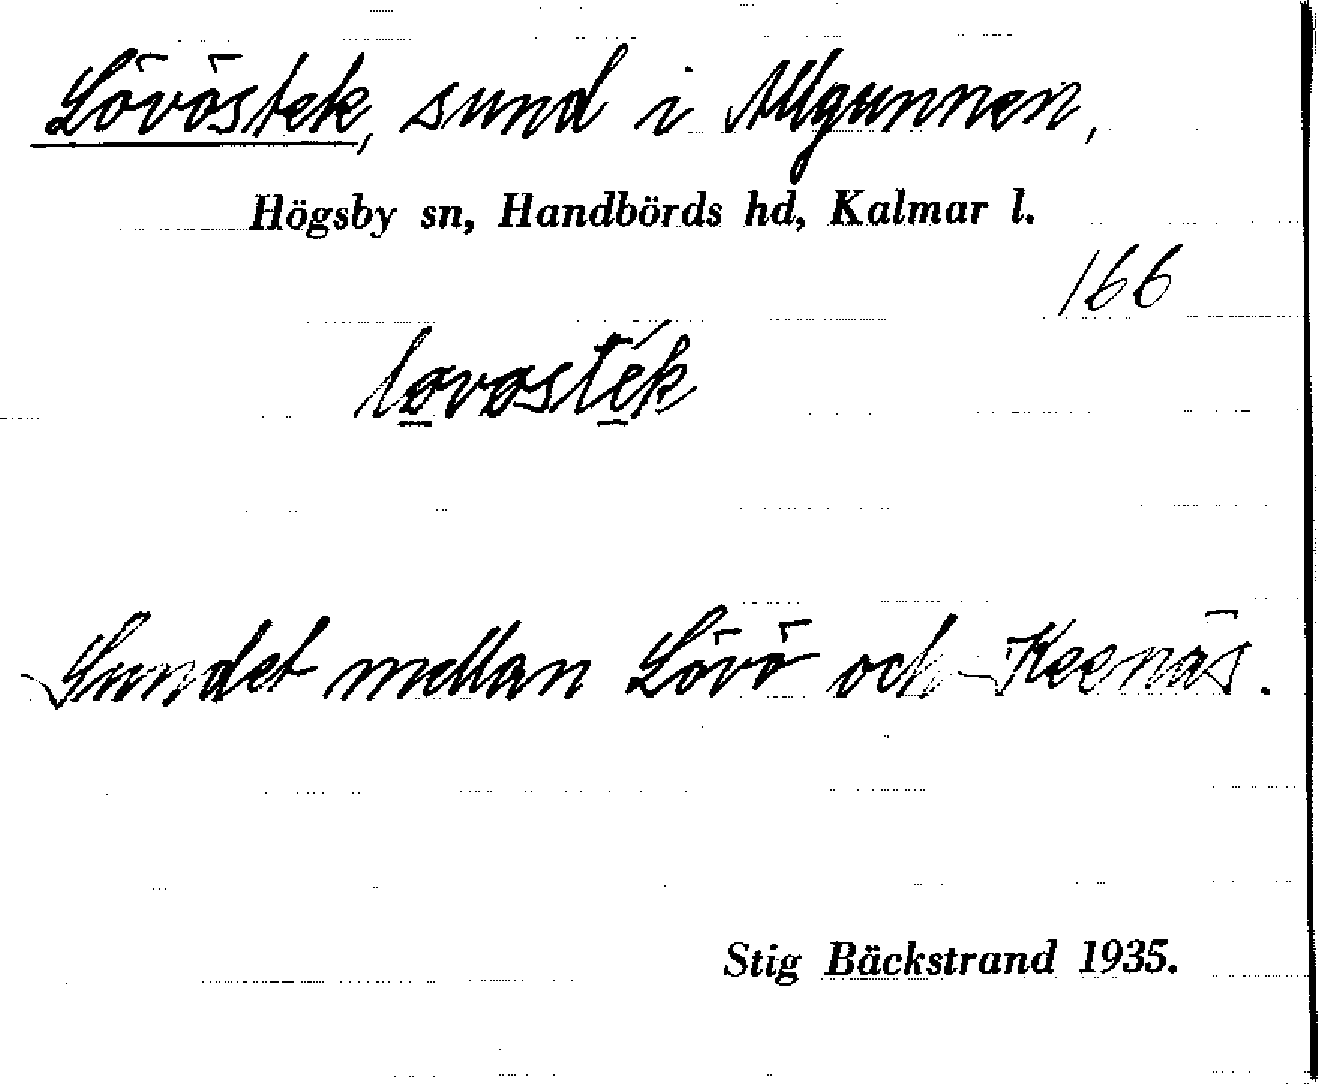 Lövöstek, sund i Allgunnen,
Högsby sn, Handbörds hd, Kalmar l.
166
Sundet mellan Lövö och Keenäs.
Stig Bäckstrand 1935.